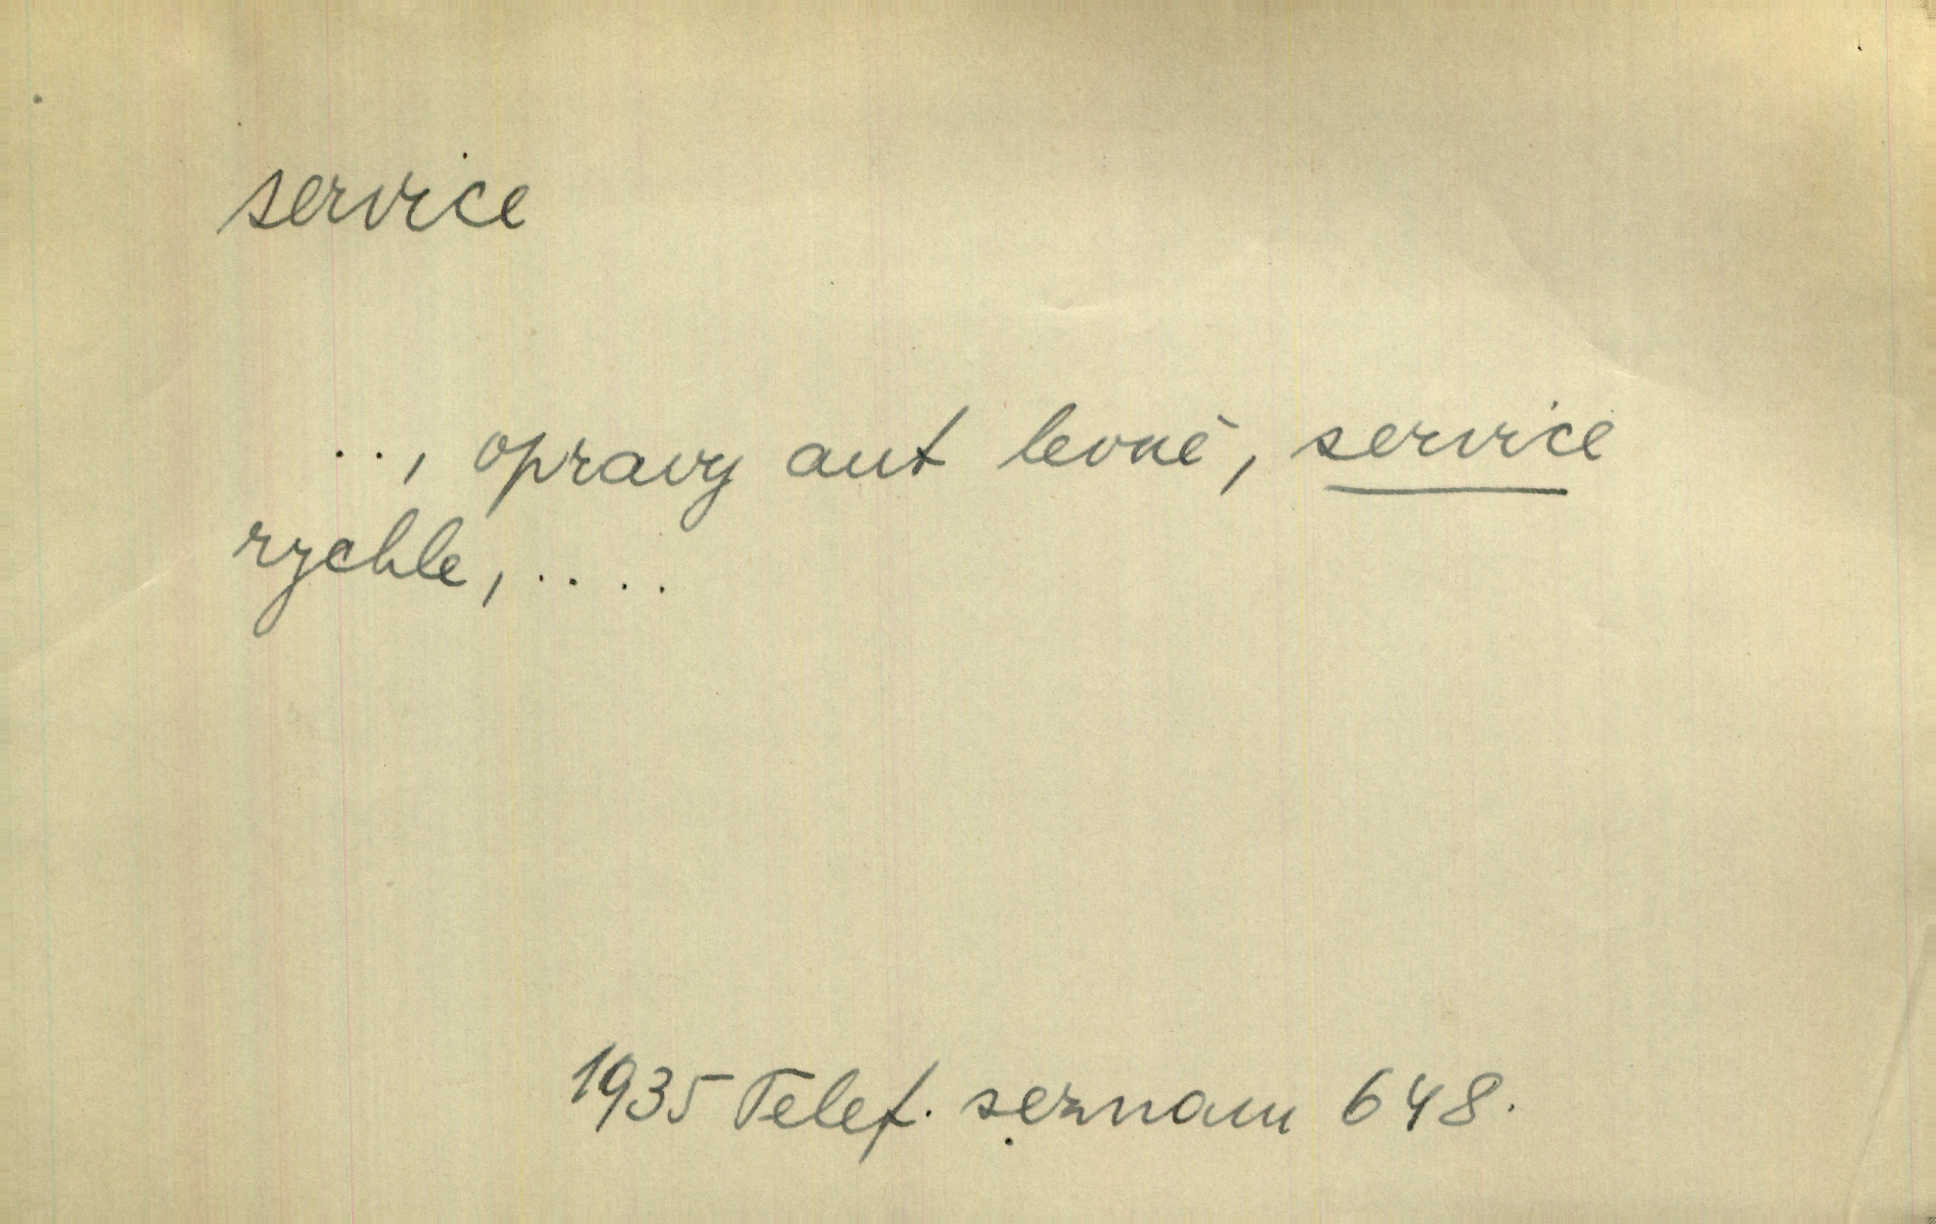 service
.., opravy aut levně, service
rychle, ....
1935 Telef. seznam 648.